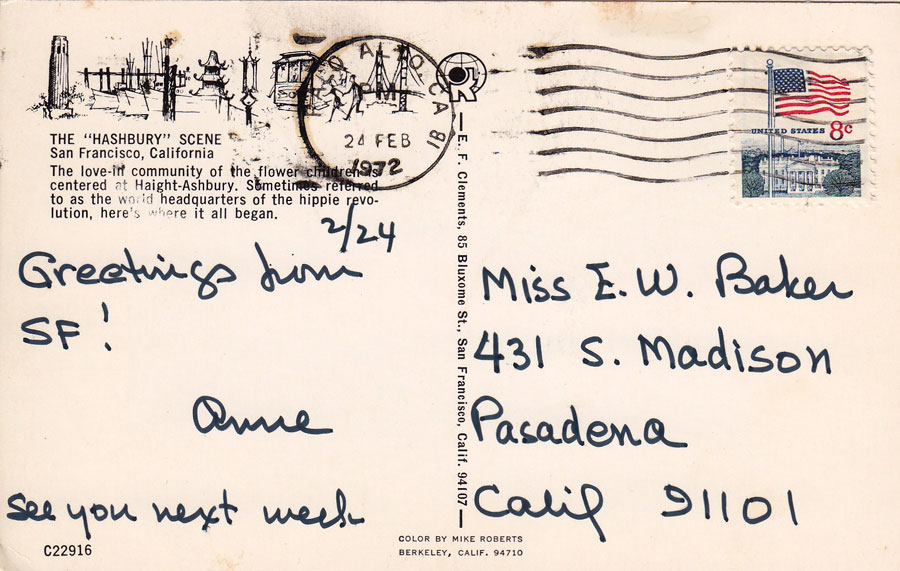 THE "HASHBURY" SCENE
San Francisco, California
The love-in community of the flower children is
centered at Haight-Ashbury. Sometimes referred
to as the world headquarters of the hippie revo-
lution, here's where it all began.
2/24
Greetings from
SF!
Anne
See you next week
C22916
CA
PM
24 FEB
1972
E. F. Clements, 85 Bluxome St., San Francisco, Calif. 94107
COLOR BY MIKE ROBERTS
BERKELEY, CALIF. 94710
UNITED STATES 8c
Miss E. W. Baker
431 S. Madison
Pasadena
Calif 91101